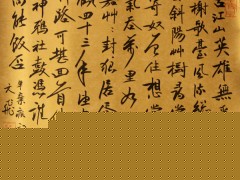 古江山英雄無
榭歌臺風流總
斜陽草樹尋常
寄奴曾住想當
氣吞萬里如
嘉草草封狼居
顧四十三年望
路可堪回首
神鴉社鼓憑誰
尚能飯否